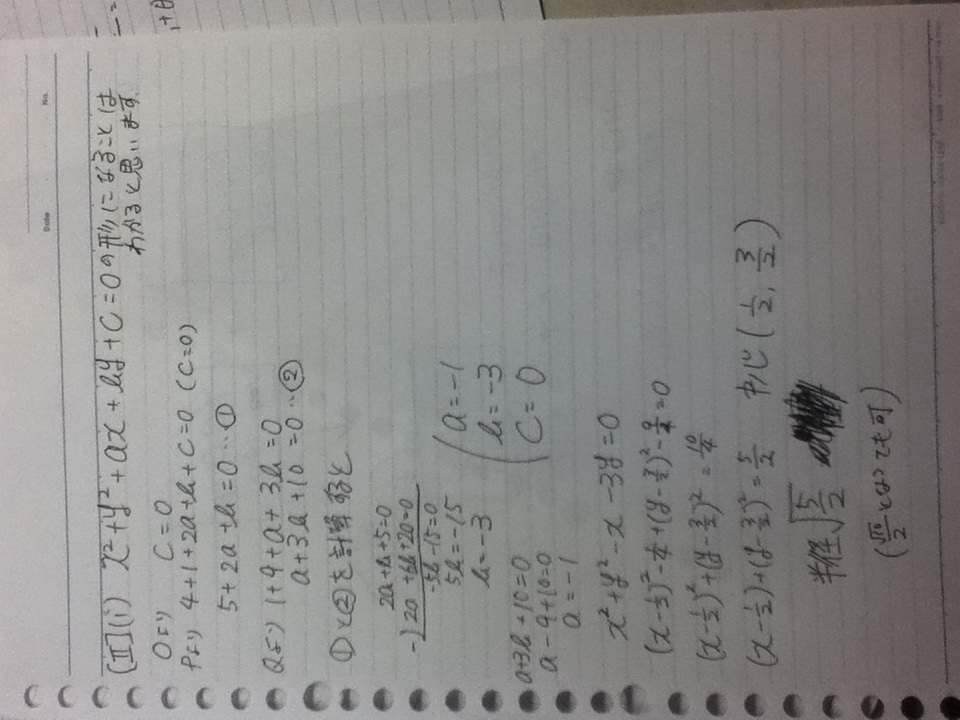 No.
Date
[II](i) x²+y²+ax+by+C=0の形になることは
わかると思います
Oより C=0
Pより 4+1+2a+b+C=0 (C=0)
5+2a+b=0…①
Qより 1+9+a+3b=0
a+3b+10=0…②
①と②を計算すると
2a+b+5=0
-) 2a+6b+20=0
-5b-15=0
5b=-15
b=-3
a+3b+10=0
a-9+10=0
a=-1
(a=-1
b=-3
C=0
x²+y²-x-3y=0
(x-1/2)²-1/4+(y-3/2)²-9/4=0
(x-1/2)²+(y-3/2)²=10/4
(x-1/2)²+(y-3/2)²=5/2 中心(1/2, 3/2)
半径√5/2
(√10/2としても可)